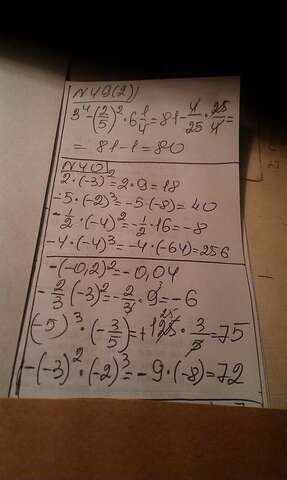 N49(2)
3⁴-(2/5)²·6 1/4=81-4/25·25/4=
= 81-1=80
N40
2·(-3)²=2·9=18
-5·(-2)³=-5·(-8)=40
-1/2·(-4)²=-1/2·16=-8
-4·(-4)³=-4·(-64)=256
-(-0,2)²=-0,04
-2/3(-3)²=-2/3·9³=-6
(-5)³·(-3/5)=+125²⁵·3/5=75
-(-3)²·(-2)³=-9·(-8)=72